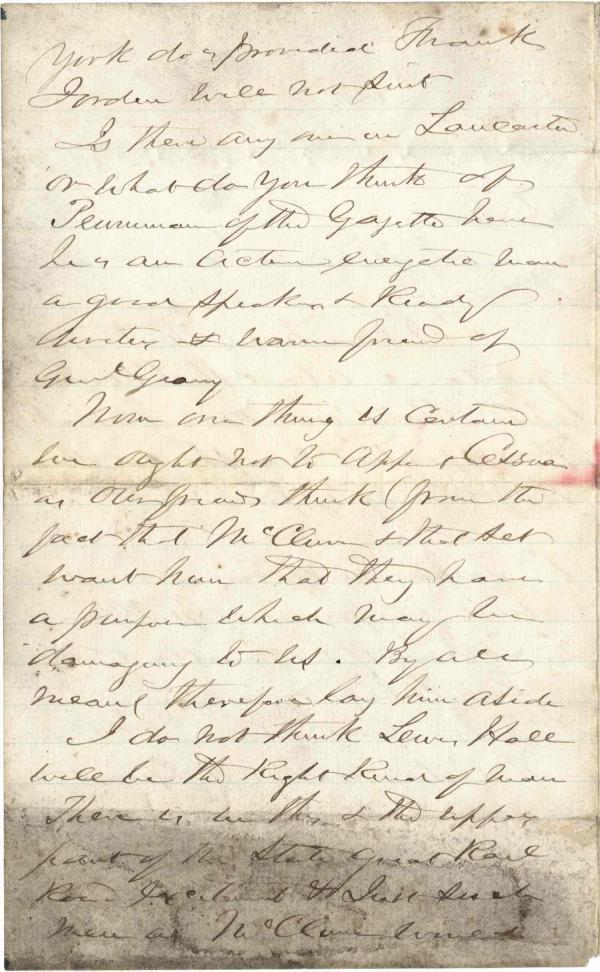 York do & provided Frank
Jordan will not suit
Is there any one in Lancaster
or what do you think of
Penniman of the Gazette here
he is an active energetic man
a good speaker & Ready
writer & warm friend of
Genl Geary
Now one thing is certain
we ought not to appt Cessna
as our friends think (from the
fact that McClure & that set
want him that they have
a purpose which may be
damaging to us. By all
means therefore lay him aside
I do not think Lewis Hall
will be the Right Kind of man
There is in this & the upper
part of the State great Rail
Road excitement & just such
men as McClure